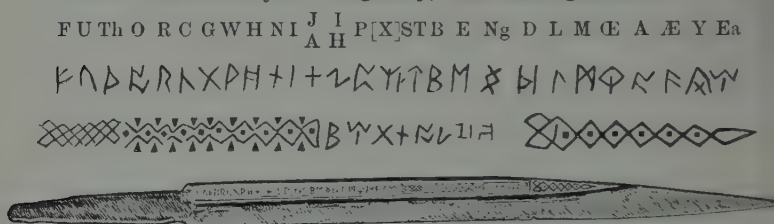 F U Th O R C G W H N I J A I H P [X] S T B E Ng D L M Œ A Æ Y Ea
ᚠ ᚢ ᚦ ᚩ ᚱ ᚳ ᚷ ᚹ ᚻ ᚾ ᛁ ᛄ ᛇ ᛈ ᛉ ᚴ ᛏ ᛒ ᛖ ᛝ ᛞ ᛚ ᛗ ᛟ ᚪ ᚫ ᚣ ᛠ
ᛒ ᛠ ᚷ ᚾ ᚩ